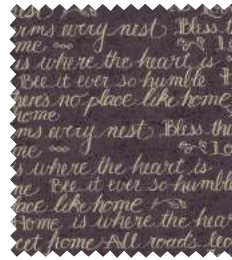 rms every nest Bless t
me
is where the heart is
Bee it ever so humble
here's no place like home
home
ms every nest Bless thi
me
s where the heart is
me Bee it ever so humble
ace like home
Home is where the hear
eet home All roads lea